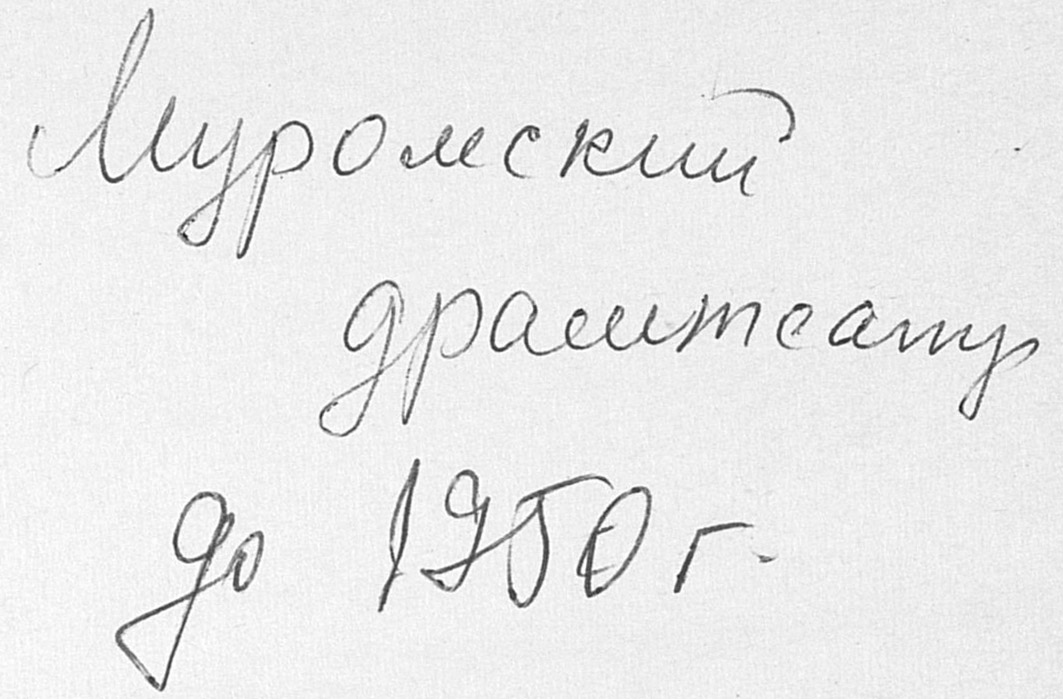 Муромский
драмтеатр
до 1950 г.